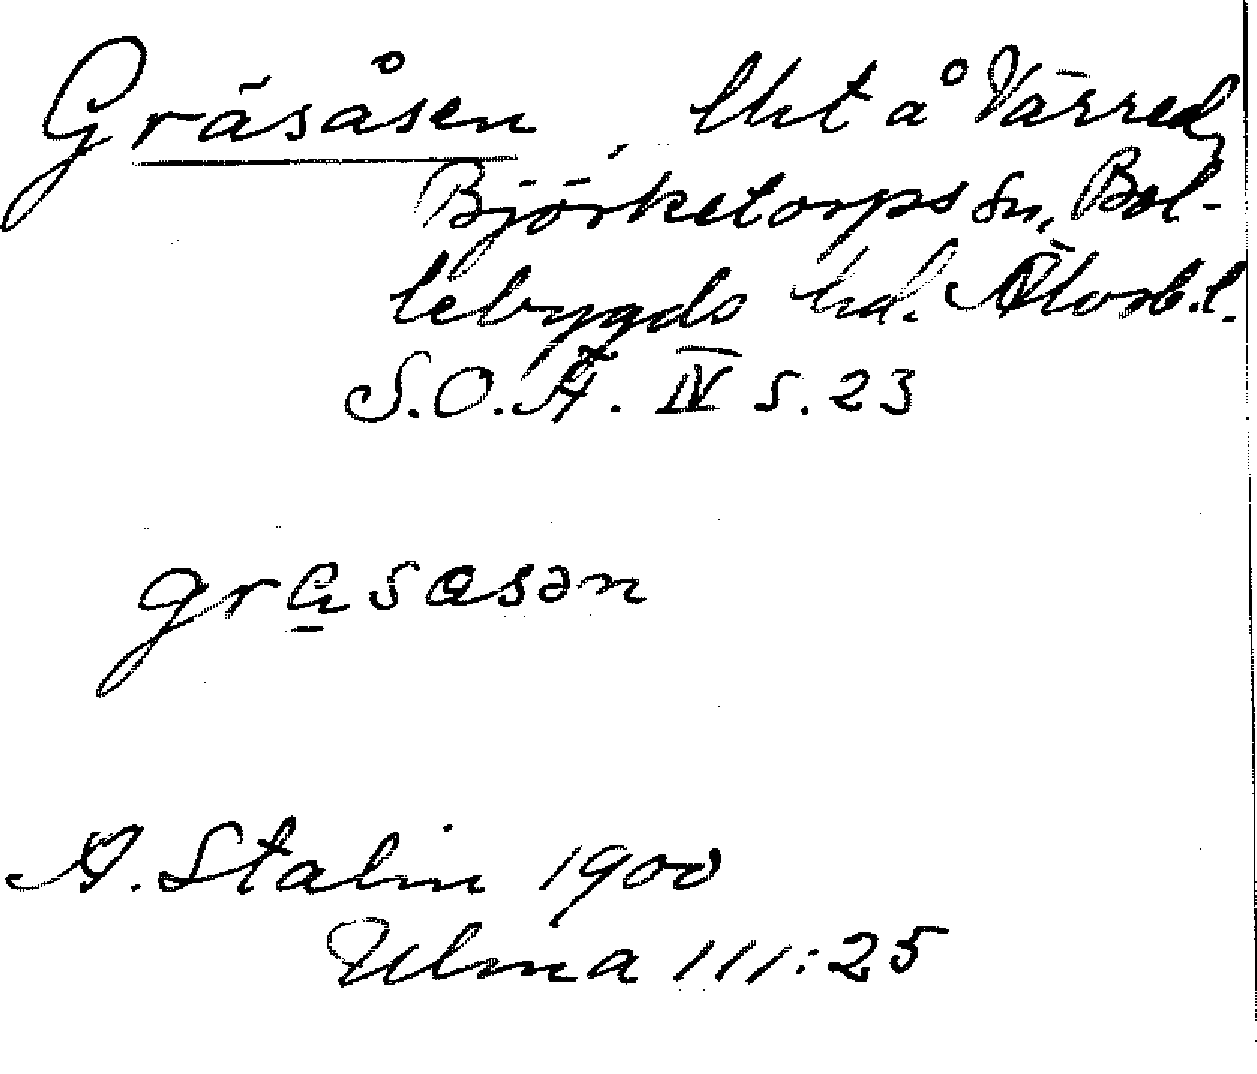 Gräsåsen, lht å Värred,
Björketorps sn, Bol-
lebygds hd. Älvsb.l.
S.O.Ä. IV s. 23
gräsåsən
A. Stalin 1900
Ulma 111:25